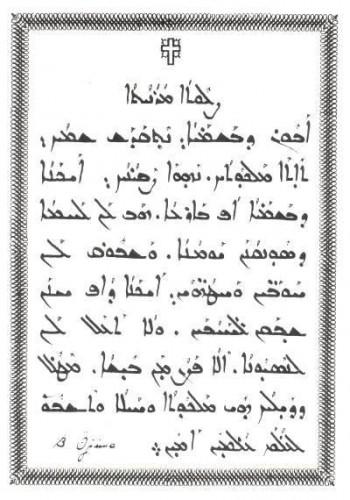 ܨܠܘܬܐ ܡܪܢܝܬܐ
ܐܒܘܢ ܕܒܫܡܝܐ. ܢܬܩܕܫ ܫܡܟ.
ܬܐܬܐ ܡܠܟܘܬܟ. ܢܗܘܐ ܨܒܝܢܟ. ܐܝܟܢܐ
ܕܒܫܡܝܐ ܐܦ ܒܐܪܥܐ. ܗܒ ܠܢ ܠܚܡܐ
ܕܣܘܢܩܢܢ ܝܘܡܢܐ. ܘܫܒܘܩ ܠܢ
ܚܘܒܝܢ ܘܚܛܗܝܢ. ܐܝܟܢܐ ܕܐܦ ܚܢܢ
ܫܒܩܢ ܠܚܝܒܝܢ. ܘܠܐ ܬܥܠ ܠܢ
ܠܢܣܝܘܢܐ. ܐܠܐ ܦܨܢ ܡܢ ܒܝܫܐ. ܡܛܠ
ܕܕܝܠܟ ܗܝ ܡܠܟܘܬܐ ܘܚܝܠܐ ܘܬܫܒܘܚܬܐ
ܠܥܠܡ ܥܠܡܝܢ ܐܡܝܢ ܀